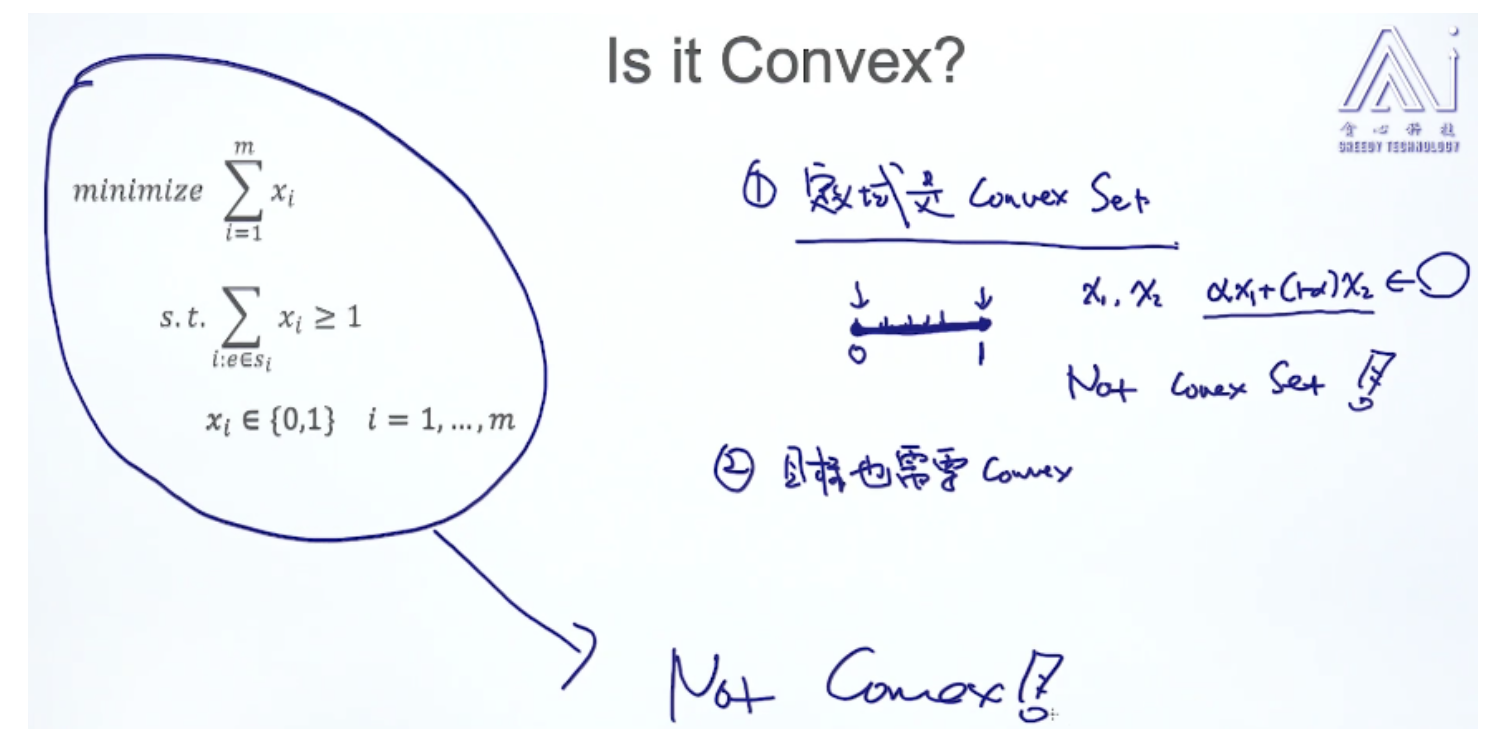 Is it Convex?
贪心科技
GREEDY TECHNOLOGY
minimize \sum_{i=1}^{m} x_i
s.t. \sum_{i:e∈s_i} x_i ≥ 1
x_i ∈ {0,1} i = 1, ..., m
① 定义域是 Convex Set
0 1
x₁, x₂ αx₁+(1-α)x₂ ∈
Not Convex Set !
② 目标也需要 Convex
Not Convex!